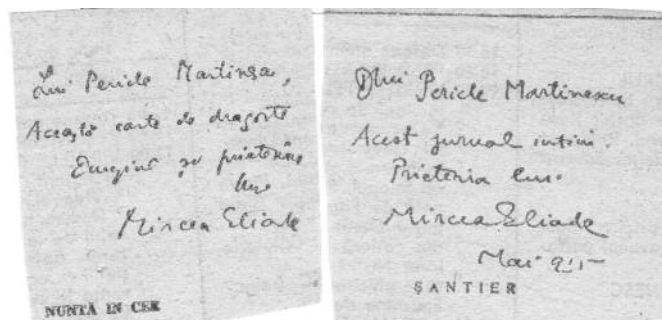 Lui Pericle Martinescu,
Această carte de dragoste
și prietenie
Mircea Eliade
NUNTĂ IN CER
Dlui Pericle Martinescu
Acest jurnal intim.
Prietenia lui.
Mircea Eliade
Mai 935
ȘANTIER